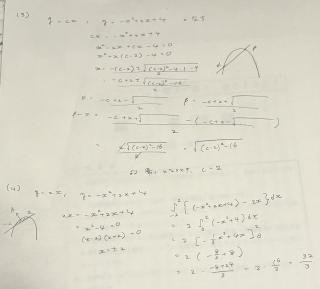 (3) y = cx , y = -x²+2x+4
cx = -x²+2x+4
x²-2x+cx-4=0
x²+x(c-2)-4=0
x = -(c-2)±√(c-2)²-4·1·-4 / 2
= -c+2±√(c-2)²-16 / 2
β = -c+2+√ / 2
β-α = -c+2+√ - (-c+2-√ ) / 2
= 2√(c-2)²-16 / 2 = √(c-2)²-16
c=2
(4) y=2x, y=-x²+2x+4
2x = -x²+2x+4
x²-4=0
(x-2)(x+2)=0
x=±2
∫ {(-x²+2x+4) - 2x} dx
= 2 ∫ (-x²+4) dx
= 2 [-1/3 x³+4x]
= 2 (-8/3+8)
= 2 · -8+24 / 3 = 2 · 16/3 = 32/3